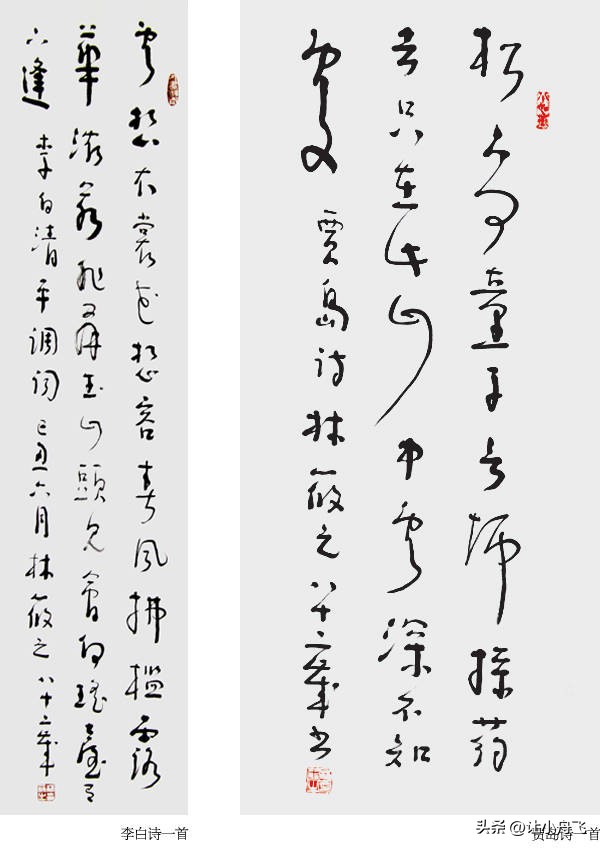 雲想衣裳花想容春風拂檻露
華濃若非羣玉山頭見會向瑤臺月
下逢 李白清平調詞 己丑六月林筱之八十二歲
李白诗一首
松下問童子言師採药
去只在此山中雲深不知
處 賈島诗林筱之八十二歲书
贾岛诗一首
头条 @让小舟飞